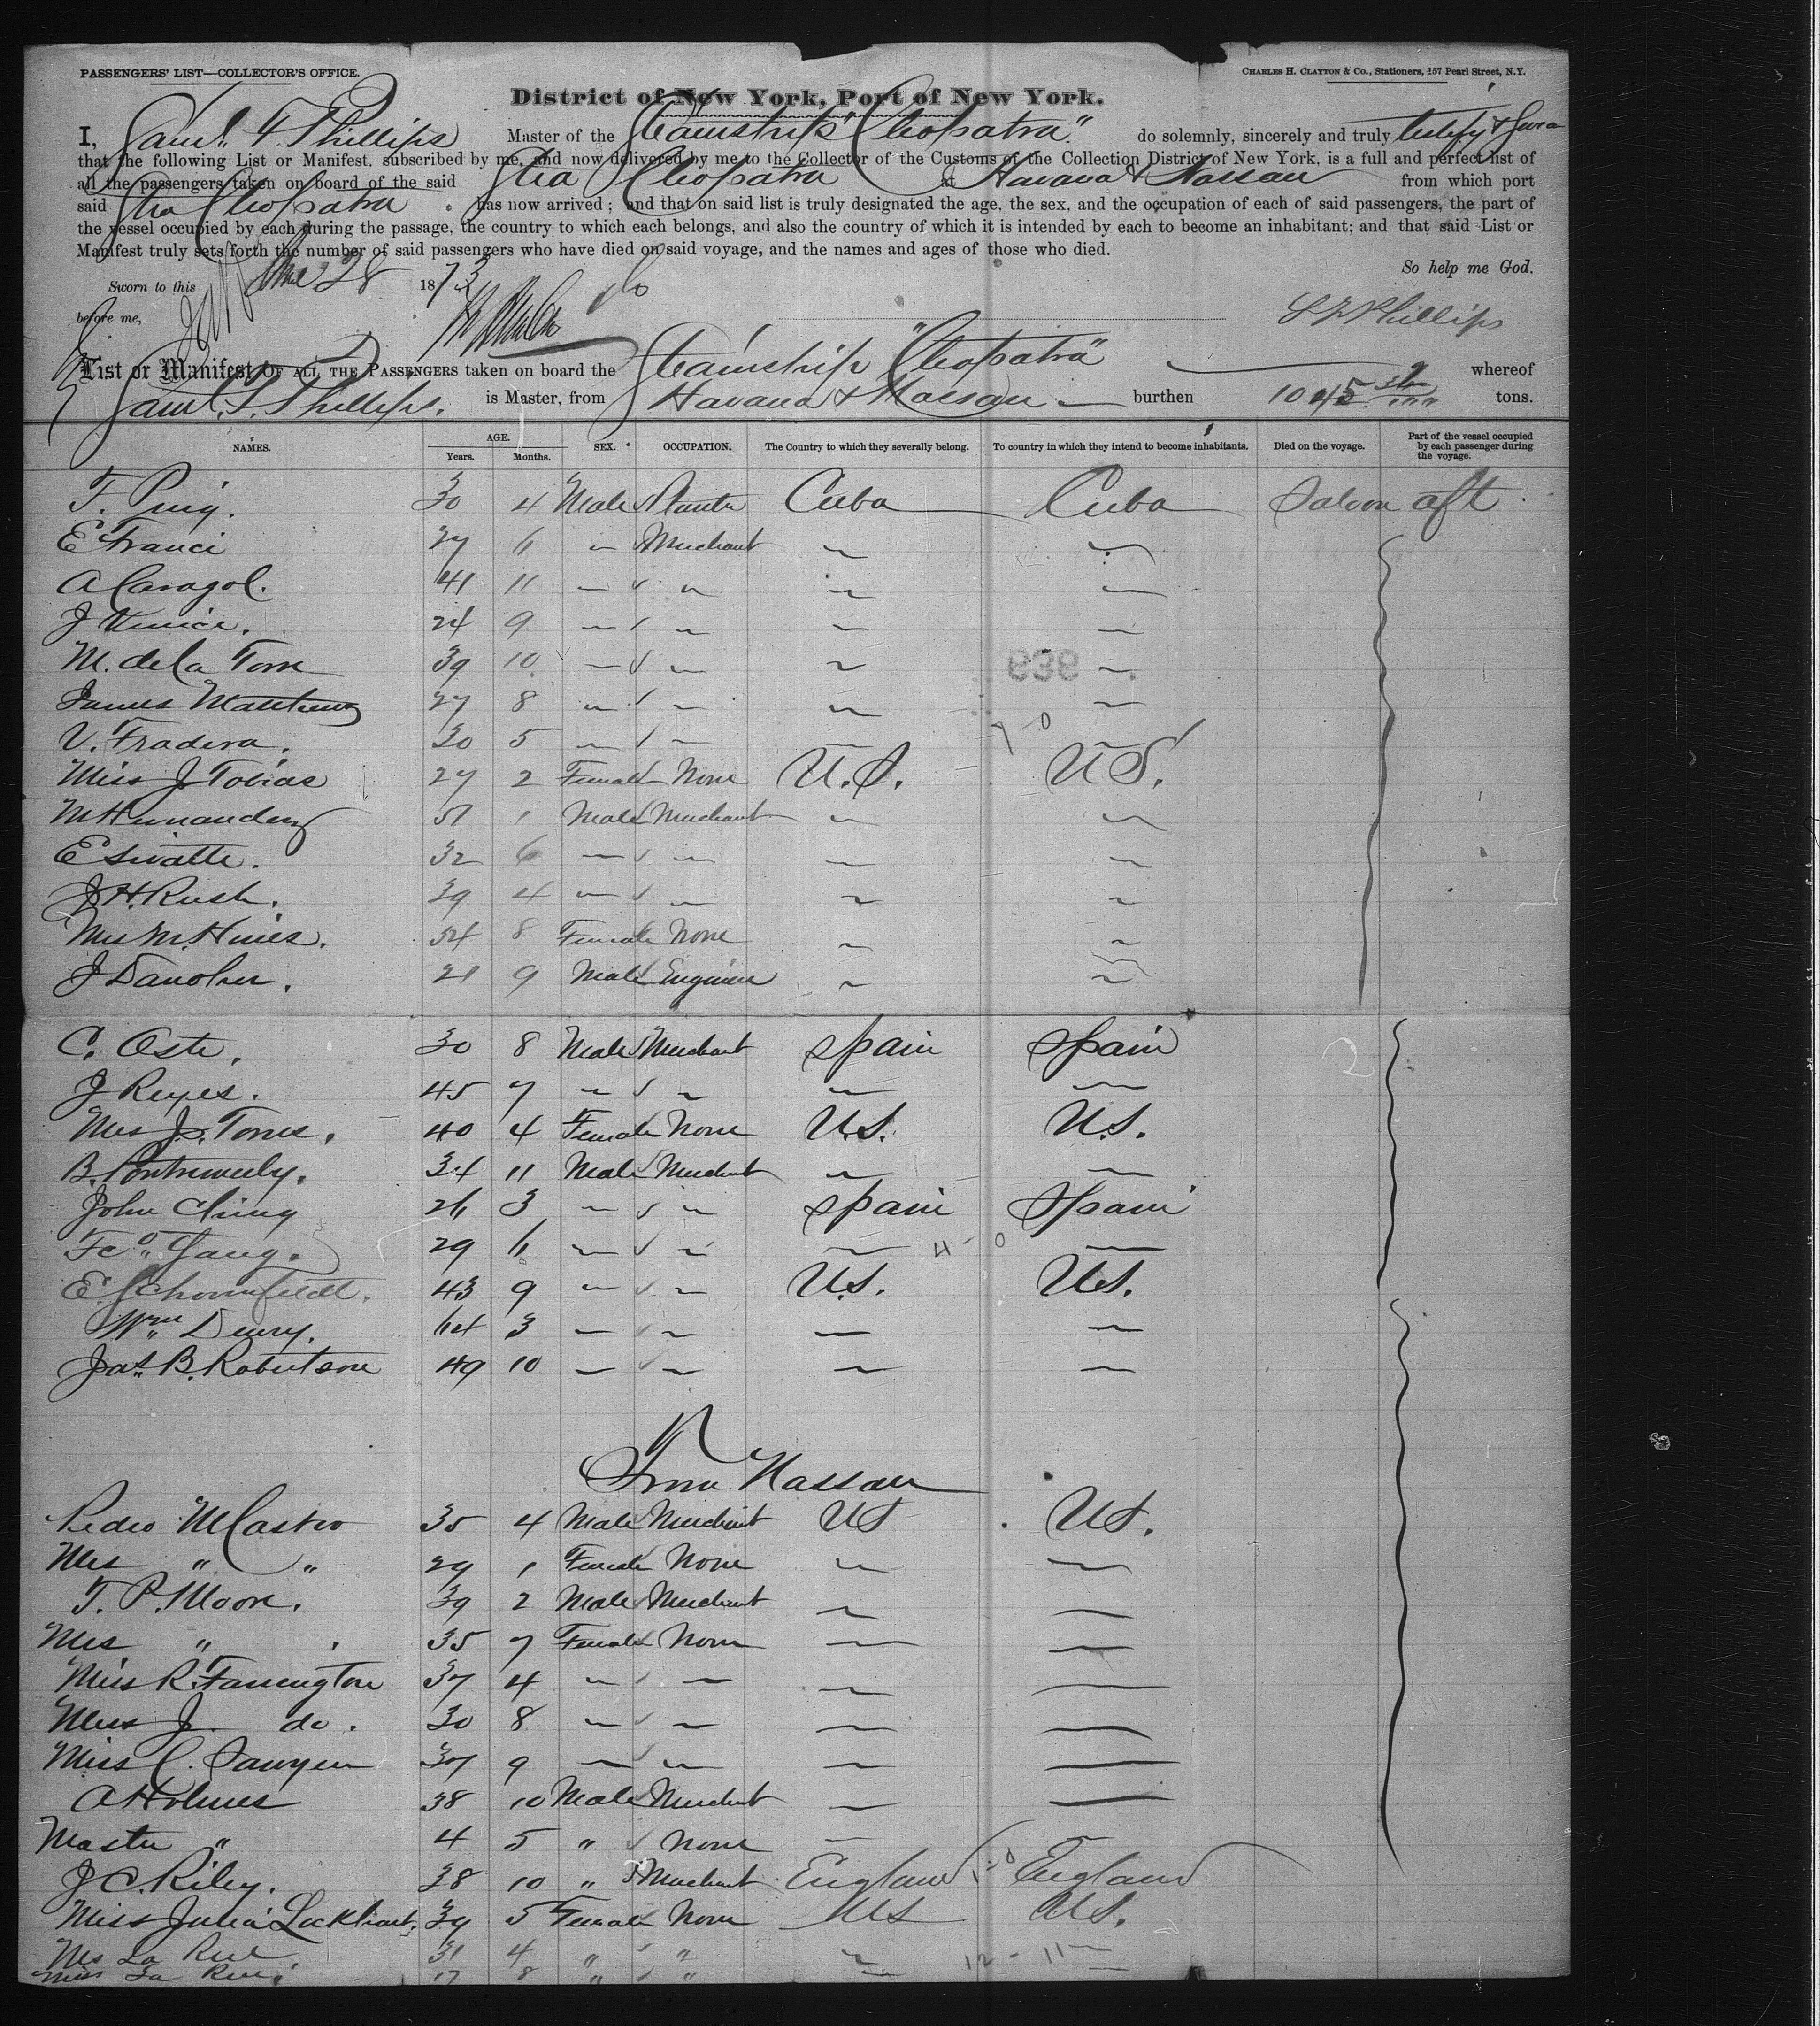 PASSENGERS' LIST—COLLECTOR'S OFFICE.
CHARLES H. CLAYTON & Co., Stationers, 157 Pearl Street, N.Y.
District of New York, Port of New York.
I, Saml. F. Phillips Master of the Steamship "Cleopatra" do solemnly, sincerely and truly
that the following List or Manifest, subscribed by me, and now delivered by me to the Collector of the Customs of the Collection District of New York, is a full and perfect list of
all the passengers taken on board of the said Str Cleopatra at Havana & Nassau from which port
said Str Cleopatra has now arrived; and that on said list is truly designated the age, the sex, and the occupation of each of said passengers, the part of
the vessel occupied by each during the passage, the country to which each belongs, and also the country of which it is intended by each to become an inhabitant; and that said List or
Manifest truly sets forth the number of said passengers who have died on said voyage, and the names and ages of those who died.
So help me God.
Sworn to this 28 1873
before me,
S F Phillips
List or Manifest OF ALL THE PASSENGERS taken on board the Steamship "Cleopatra" whereof
Saml. F. Phillips. is Master, from Havana & Nassau burthen 1045 tons.
NAMES. AGE. Years. Months. SEX. OCCUPATION. The Country to which they severally belong. To country in which they intend to become inhabitants. Died on the voyage. Part of the vessel occupied by each passenger during the voyage.
F. Puig. 30 4 Male Planter Cuba Cuba Saloon aft
E Franci 27 6 " Merchant " "
A Caragol. 41 11 " " " "
J 24 9 " " " "
M. de la Torre 39 10 " " " "
939
James Matthews 27 8 " " " "
V. Fradera. 30 5 " " " "
Miss J. Tobias 27 2 Female None U.S. U.S.
M Hernandez 51 1 Male Merchant " "
E Sivatte. 32 6 " " " "
J H. Rush. 39 4 " " " "
Mrs M. Hines. 54 8 Female None " "
J Danoher. 21 9 Male Engineer " "
C. Oste. 30 8 Male Merchant Spain Spain
J Reyes. 45 7 " " " "
Mrs J. Torres. 40 4 Female None U.S. U.S.
B. 34 11 Male Merchant " "
John Ching 26 3 " " Spain Spain
Fco. Yang. 29 6 " " " "
E. Schoenfeldt. 43 9 " " U.S. U.S.
Wm. Denry. 64 3 " " " "
Jas. B. Robertson 49 10 " " " "
From Nassau
Pedro M Castro 35 4 Male Merchant US US.
Mrs " " 29 1 Female None " "
T. P. Moore. 39 2 Male Merchant " "
Mrs " 35 7 Female None " "
Miss R. Farrington 37 4 " " " "
Miss J. do. 30 8 " " " "
Miss C. Sawyer 37 9 " " " "
A Holmes 38 10 Male Merchant " "
Master " 4 5 " None " "
J C. Riley. 38 10 " Merchant England England
Miss Julia Lockhart. 39 5 Female None US US.
Mrs La Rue. 31 4 " " " "
Miss La Rue. 17 8 " " " "